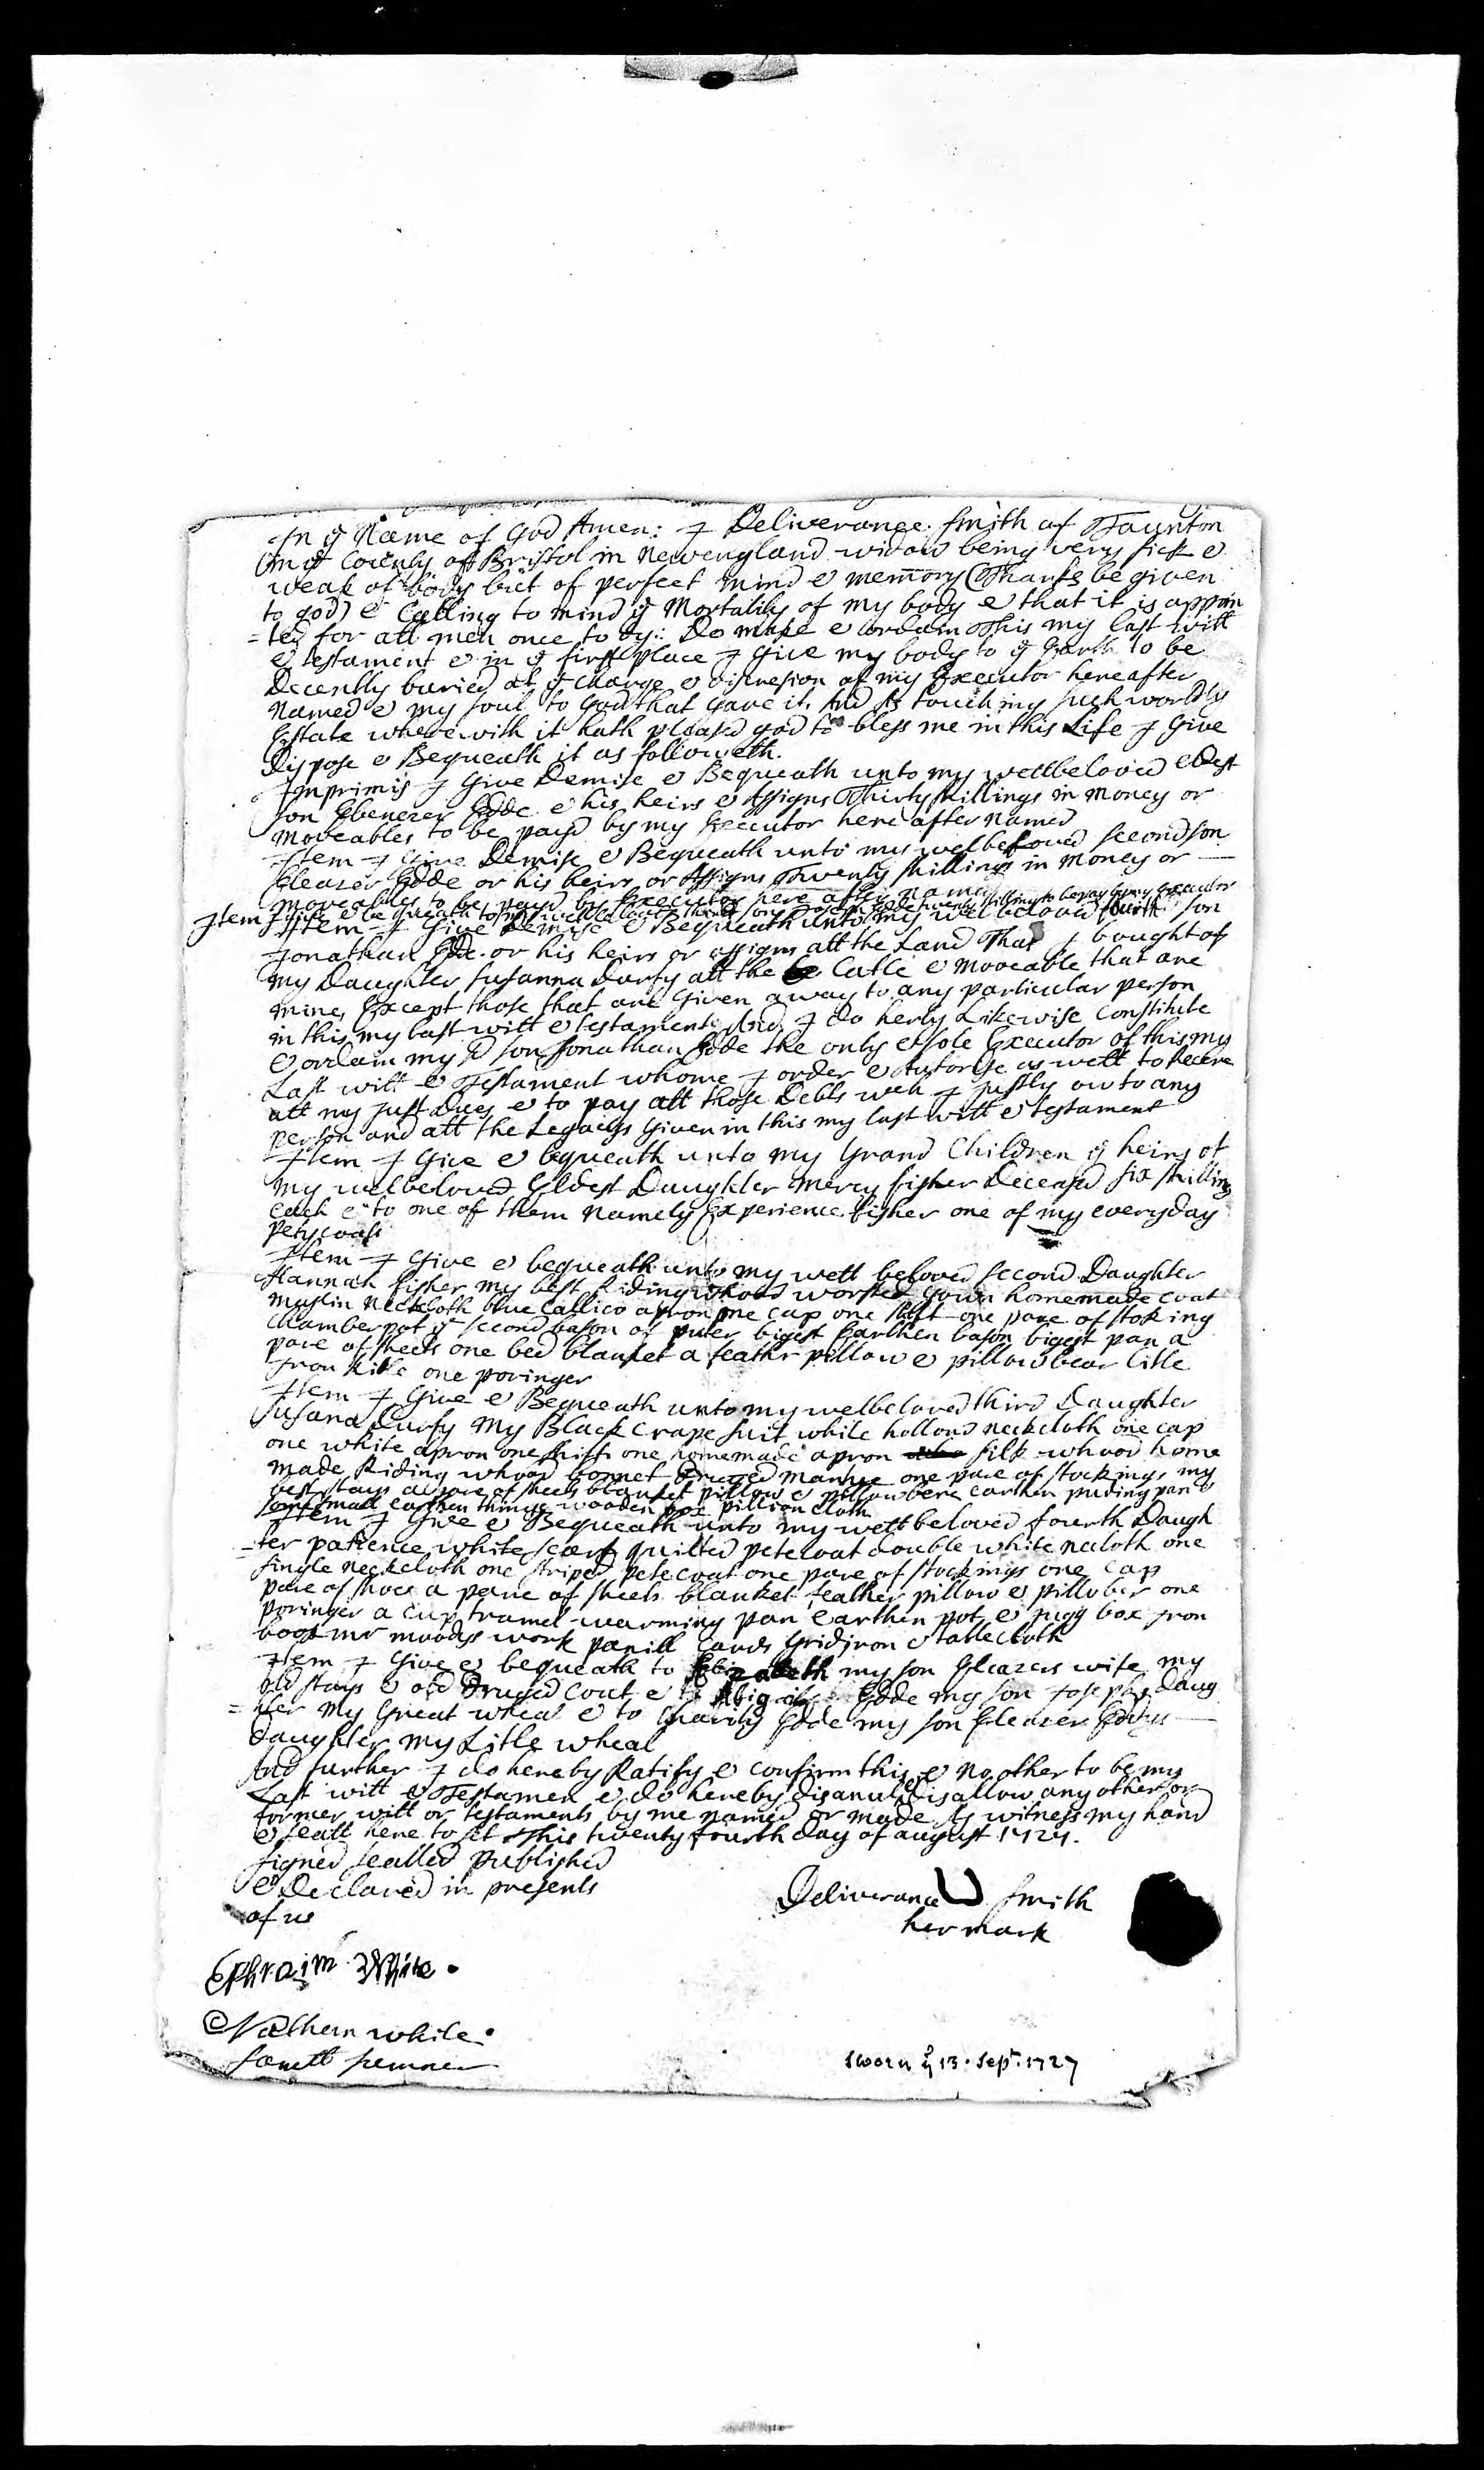 In ye Name of God Amen: I Deliverance Smith of Taunton
in ye County of Bristol in Newengland widow being very sick &
weak of body but of perfect mind & memory (Thanks be given
to god) & Calling to mind ye Mortality of my body & that it is appoin
=ted for all men once to dy: Do make & ordain This my last will
& testament & in ye first place I Give my body to ye Earth to be
Decently buried at ye Charge & discresion of my Executor hereafter
Named & my soul to God that gave it. And As touching such worldly
Estate wherewith it hath pleased god to bless me in this Life I Give
Dispose & Bequeath it as followeth.
Inprimis I Give Demise & Bequeath unto my wellbeloved Eldest
son Ebenezer Edde & his heirs & Assigns Thirty shillings in Money or
Moveables to be payd by my Executor here after Named
Item I Give Demise & Bequeath unto my welbeloved second son
Eleazer Edde or his heirs or Assigns Twenty shillings in Money or
moveables to be payd by Executor here after named
Item I give & bequeath to my well beloved third son Joseph Edde twenty shillings to be pay by my Executor
Item I Give Demise & Bequeath unto my wel beloved fourth son
Jonathan Edde or his heirs or assigns all the Land That I bought of
my Daughter Susanna Durfy all the Catle & moveable that are
mine, Except those that are Given away to any particular person
in this my last will & testament And I do herby Likewise Constitute
& ordain my sd son Jonathan Edde the only & sole Executor of this my
Last will & Testament whome I order & Autorise as well to Receve
all my just Dues & to pay all those Debts wch I justly ow to any
person and all the Legacys Given in this my last will & testament
Item I Give & bequeath unto my Grand Children ye heirs of
my welbeloved Eldest Daughter Mercy fisher Deceased six shillings
each & to one of them Namely Experience fisher one of my everyday
Petycoats
Item I Give & bequeath unto my well beloved second Daughter
Hannah fisher my best Riding whood worsted Gown homemade coat
muslin Neckcloth blue Callico apron one cap one shift one pare of stoking
Chamberpot ye second bason of puter bigest Earthen bason bigest pan a
pare of sheets one bed blanket a feathr pillow & pillowbear litle
Iron Kitle one poringer
Item I Give & Bequeath unto my welbeloved third Daughter
Susana Durfy My Black Crape suit white holland neckcloth one cap
one white apron one shift one homemade apron silk whood home
made Riding whood bonnet Druged mantue one pare of stockings my
best stays a pare of sheets blanket pillow & pillowbere earthen puding pan &
some small earthen things wooden box pillion cloth
Item I Give & Bequeath unto my well beloved fourth Daugh
=ter patience white scarf quilted petecoat double white nacloth one
single neckcloth one striped petecoat one pare of stockings one Cap
pare of shoes a pare of sheets blanket feather pillow & pillober one
poringer a Cup tramel warming pan Earthen pot & jugg box Iron
book mr moodys work panill Cards Gridiron & tablecloth
Item I Give & bequeath to Elizabeth my son Eleazers wife my
old stays & old Druged Coat & to Abigail Edde my son Josephs Daug
=hter My Great wheal & to Charity Edde my son Eleazer Eddys
daughter my Litle wheal
And further I do hereby Ratify & confirm this & No other to be my
Last will & Testamen & do hereby disanul & disallow any other or
former will or testaments by me named or made As witness my hand
& seall here to set This twenty fourth day of august 1727.
signed sealled published
& Declared in presents
of us
Deliverance Smith
her mark
Ephraim White.
Nathan white.
Samll
sworn ye 13. Sepr. 1727